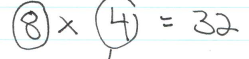 8 × 4 = 32